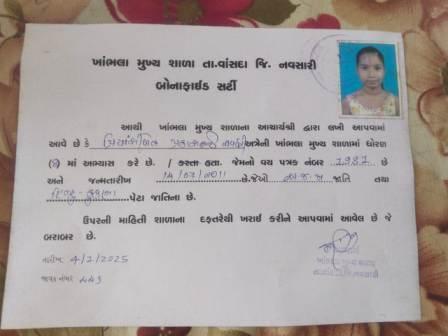 ખાંભલા મુખ્ય શાળા તા.વાંસદા જિ. નવસારી
બોનાફાઈડ સર્ટી
આથી ખાંભલા મુખ્ય શાળાના આચાર્યશ્રી દ્વારા લખી આપવામાં
આવે છે કે અત્રેની ખાંભલા મુખ્ય શાળામાં ધોરણ
માં અભ્યાસ કરે છે. / કરતા હતા. જેમનો વય પત્રક નંબર 2981 છે
અને જન્મતારીખ છે.જેઓ જાતિ તથા
હિન્દુ - કુકણા પેટા જાતિના છે.
ઉપરની માહિતી શાળાના દફતરેથી ખરાઈ કરીને આપવામાં આવેલ છે જે
બરાબર છે.
તારીખ 4/2/2025
જાવક નંબર ૬૬૩